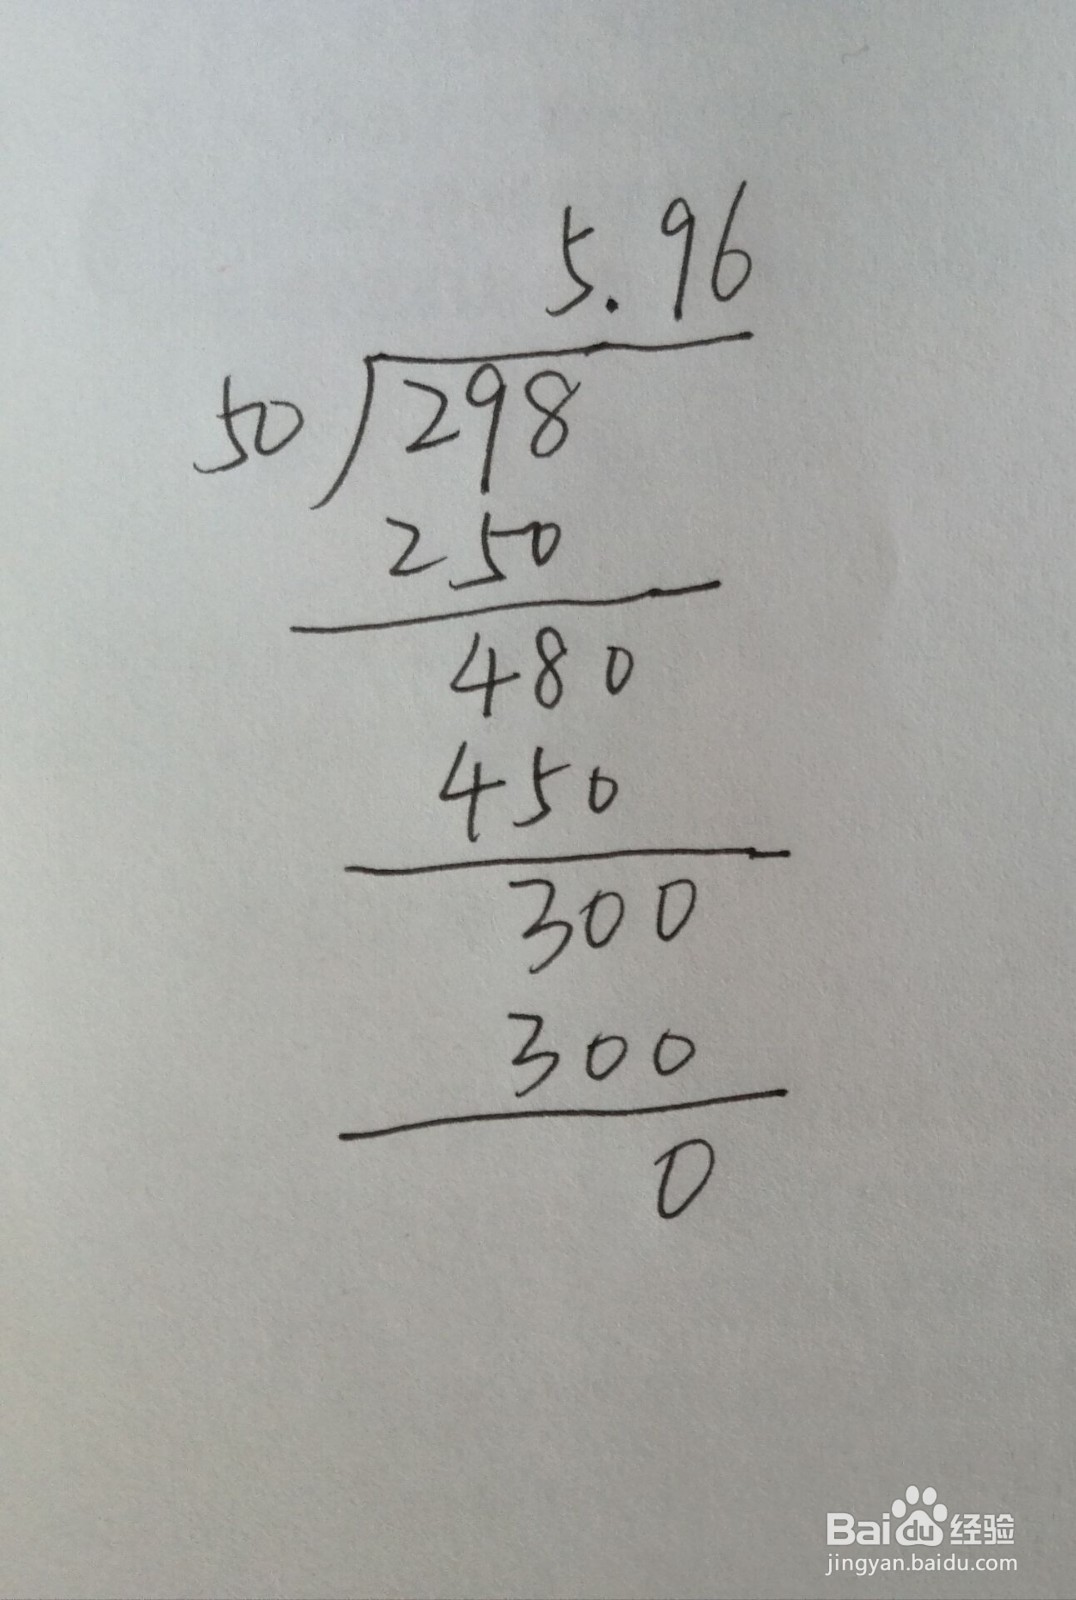 5.96
50 298
250
480
450
300
300
0
Baidu 经验
jingyan.baidu.com